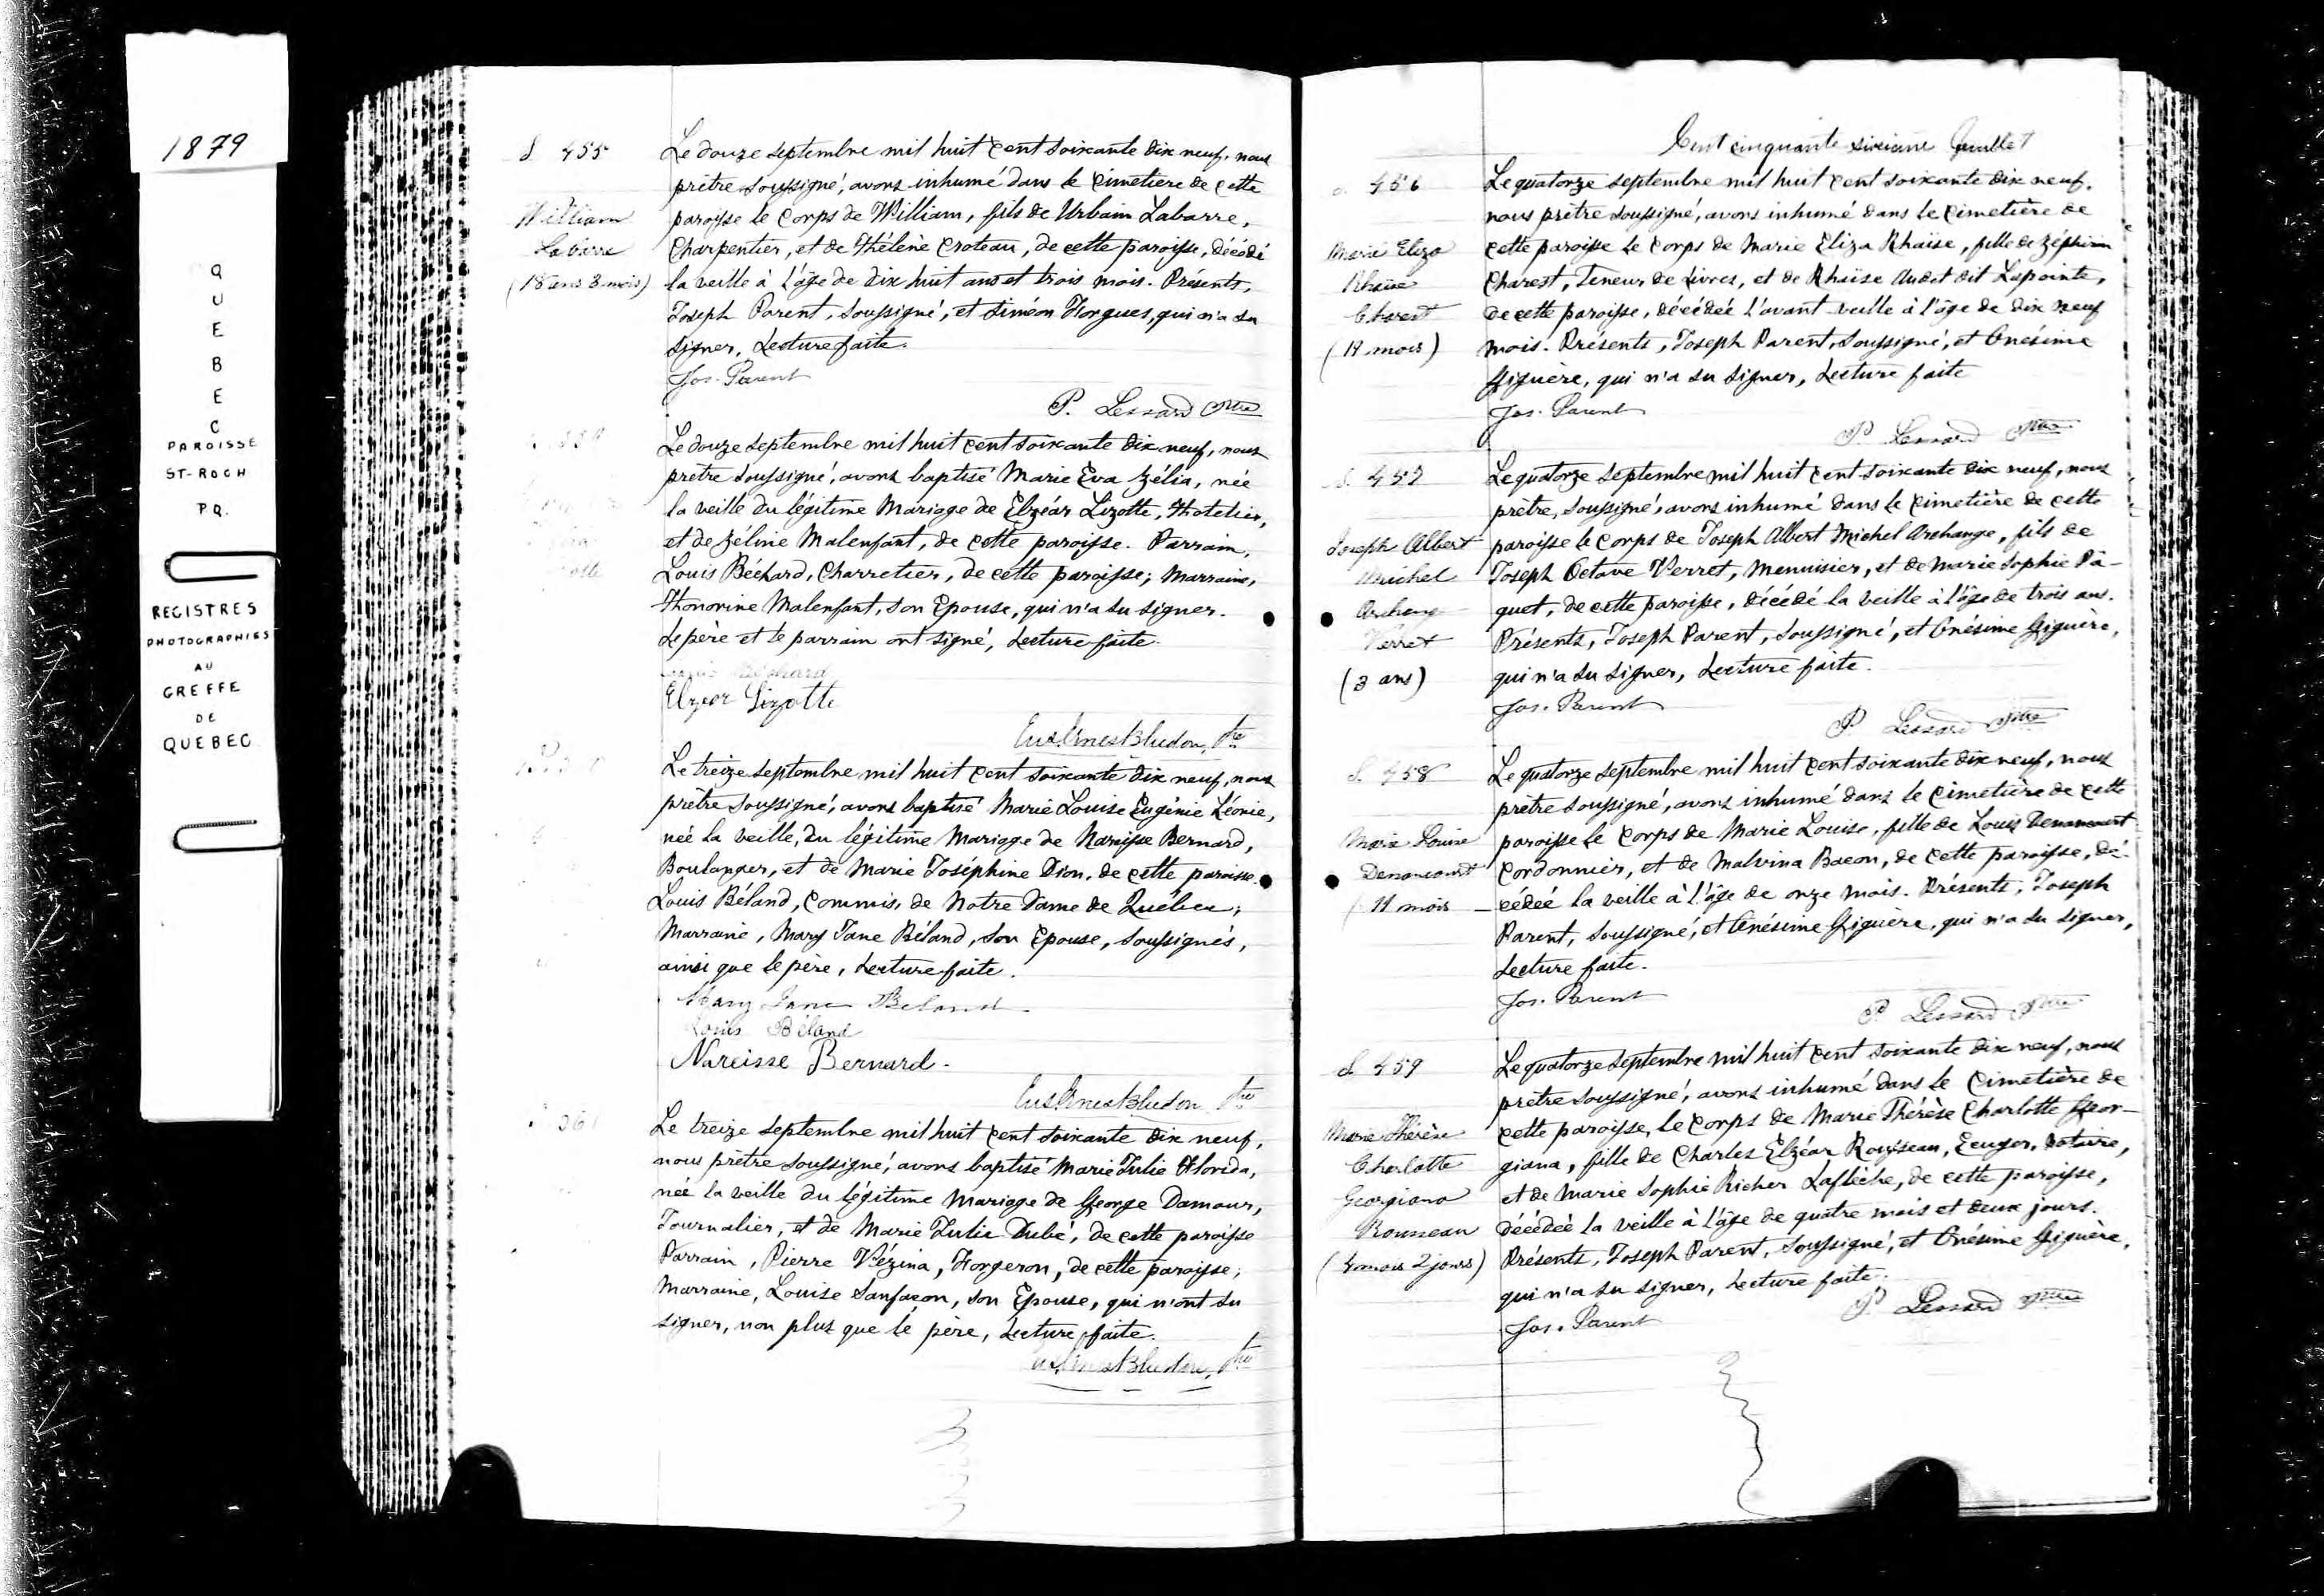 1879
Q
U
E
B
E
C
PAROISSE
ST-ROCH
P.Q.
REGISTRES
PHOTOGRAPHIES
AU
GREFFE
DE
QUEBEC
S. 455
William
Labarre
(18 ans 3 mois)
Le douze septembre mil huit cent soixante dix neuf, nous
prêtre soussigné, avons inhumé dans le cimetière de cette
paroisse le corps de William, fils de Urbain Labarre,
Charpentier, et de Hélène Croteau, de cette paroisse, décédé
la veille à l'âge de dix huit ans et trois mois. Présents,
Joseph Parent, soussigné, et Siméon Forgues, qui n'a su
signer, Lecture faite.
Jos. Parent
P. Lessard Ptre
Le douze septembre mil huit cent soixante dix neuf, nous
prêtre soussigné, avons baptisé Marie Eva Zélia, née
la veille du légitime Mariage de Elzéar Lizotte, Hotelier,
et de Zéline Malenfant, de cette paroisse. Parrain,
Louis Béchard, Charretier, de cette paroisse; Marraine,
Honorine Malenfant, son Epouse, qui n'a su signer.
Le père et le parrain ont signé, Lecture faite.
Béchard
Elzear Lizotte
Ptre
Le treize septembre mil huit cent soixante dix neuf, nous
prêtre soussigné, avons baptisé Marie Louise Eugénie Léonie,
née la veille, du légitime Mariage de Narcisse Bernard,
Boulanger, et de Marie Joséphine Dion, de cette paroisse.
Louis Béland, Commis, de Notre Dame de Québec;
Marraine, Mary Jane Béland, son Epouse, soussignés,
ainsi que le père, Lecture faite.
Mary Jane Beland
Louis Béland
Narcisse Bernard.
Ptre
Le treize septembre mil huit cent soixante dix neuf,
nous prêtre soussigné, avons baptisé Marie Julie Florida,
née la veille du légitime Mariage de George Damour,
Journalier, et de Marie Julie Dubé, de cette paroisse
Parrain, Pierre Vézina, Forgeron, de cette paroisse;
Marraine, Louise Sanfacon, son Epouse, qui n'ont su
signer, non plus que le père, Lecture faite.
Ptre
Cent cinquante sixième feuillet
S. 456
Marie Eliza
Rhaïse
Charest
(19 mois)
Le quatorze septembre mil huit cent soixante dix neuf,
nous prêtre soussigné, avons inhumé dans le cimetière de
cette paroisse le corps de Marie Eliza Rhaïse, fille de Zéphirin
Charest, Teneur de Livres, et de Rhaïse Audet dit Lapointe,
de cette paroisse, décédée l'avant veille à l'âge de dix neuf
mois. Présents, Joseph Parent, soussigné, et Onésime
Giguère, qui n'a su signer, Lecture faite
Jos. Parent
P. Lessard Ptre
S. 457
Joseph Albert
Michel
Archange
Verret
(3 ans)
Le quatorze septembre mil huit cent soixante dix neuf, nous
prêtre, soussigné, avons inhumé dans le cimetière de cette
paroisse le corps de Joseph Albert Michel Archange, fils de
Joseph Octave Verret, Menuisier, et de Marie Sophie Pâ-
quet, de cette paroisse, décédé la veille à l'âge de trois ans.
Présents, Joseph Parent, soussigné, et Onésime Giguère,
qui n'a su signer, Lecture faite.
Jos. Parent
P. Lessard Ptre
S. 458
Marie Louise
Denoncourt
(11 mois
Le quatorze septembre mil huit cent soixante dix neuf, nous
prêtre soussigné, avons inhumé dans le cimetière de cette
paroisse le corps de Marie Louise, fille de Louis Denoncourt
Cordonnier, et de Malvina Bacon, de cette paroisse, dé-
cédée la veille à l'âge de onze mois. Présents, Joseph
Parent, soussigné, et Onésime Giguère, qui n'a su signer,
Lecture faite.
Jos. Parent
P. Lessard Ptre
S. 459
Marie Thérèse
Charlotte
Georgiana
Rousseau
(4 mois 2 jours)
Le quatorze septembre mil huit cent soixante dix neuf, nous
prêtre soussigné, avons inhumé dans le cimetière de
cette paroisse, le corps de Marie Thérèse Charlotte Geor-
giana, fille de Charles Elzéar Rousseau, Ecuyer, Notaire,
et de Marie Sophie Richer Laflèche, de cette paroisse,
décédée la veille à l'âge de quatre mois et deux jours.
Présents, Joseph Parent, soussigné, et Onésime Giguère,
qui n'a su signer, Lecture faite.
Jos. Parent
P. Lessard Ptre